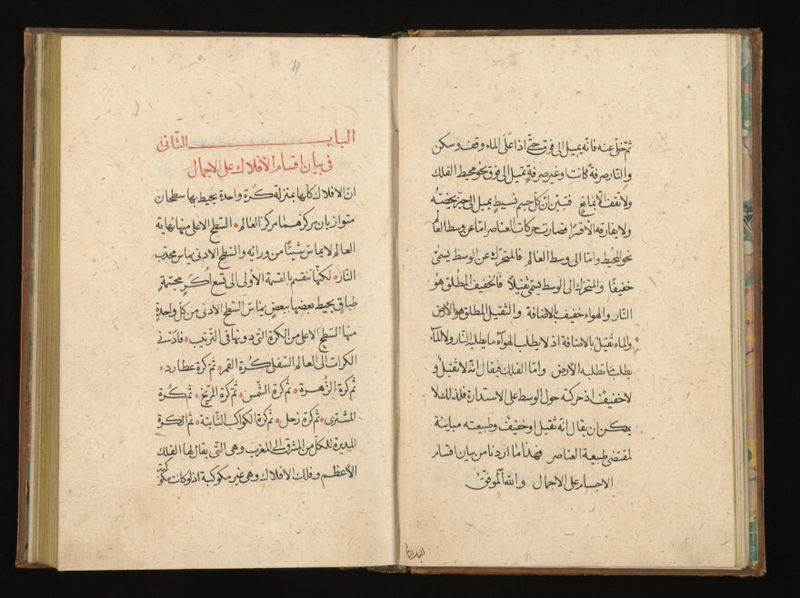 ثم خلي عنه فانه يميل الى فوق حتى اذا علي الماء وقف وسكن
والنار صرفة كانت او غير صرفة تميل الى فوق نحو محيط الفلك
ولا تقف الا بمانع فتبين ان كل جسم بسيط يميل الى حيز يخصه
ولا يفارقه الا قسرا فصارت حركات العناصر اما عن وسط العالم
نحو المحيط واما الى وسط العالم فالمتحرك عن الوسط يسمى
خفيفا والمتحرك الى الوسط يسمى ثقيلا فالخفيف المطلق هو
النار والهواء خفيف بالاضافة والثقيل المطلق هو الارض
والماء ثقيل بالاضافة اذ لا يطلب الهواء ما يطلبه النار ولا الماء
يطلب ما تطلبه الارض واما الفلك فيقال انه لا ثقيل و
لا خفيف اذ حركته حول الوسط على الاستدارة فلذلك لا
يمكن ان يقال انه ثقيل او خفيف وطبيعته مباينة
لمقتضى طبيعة العناصر فهذا ما اردنا من بيان اقسام
الاجسام على الاجمال والله الموفق
الباب الثاني
في بيان اقسام الافلاك على الاجمال
ان الافلاك كلها بمنزلة كرة واحدة يحيط بها سطحان
متوازيان مركزهما مركز العالم السطح الاعلى منها نهاية
العالم لا يماس شيئا من ورائه والسطح الادنى يماس محدب
النار لكنها تنقسم بالقسمة الاولى الى تسع اكر مجتمعة
طباق يحيط بعضها ببعض يماس السطح الادنى من كل واحدة
منها السطح الاعلى من الكرة التي دونها في الترتيب فادنى
الكرات الى العالم السفل كرة القمر ثم كرة عطارد
ثم كرة الزهرة ثم كرة الشمس ثم كرة المريخ ثم كرة
المشترى ثم كرة زحل ثم كرة الكواكب الثابتة ثم الكرة
المديرة للكل من المشرق الى المغرب وهي التي يقال لها الفلك
الاعظم وفلك الافلاك وهي غير مكوكبة اذ لو كانت مكوكبة